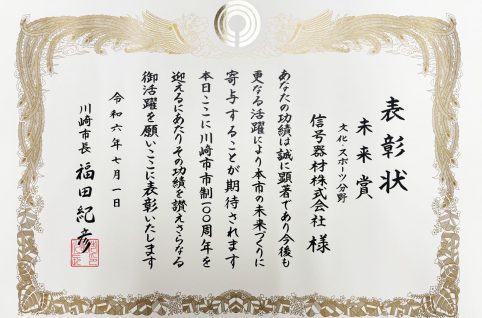 表彰状
未来賞
文化・スポーツ分野
信号器材株式会社 様
あなたの功績は誠に顕著であり今後も
更なる活躍により本市の未来づくりに
寄与することが期待されます
本日ここに川崎市市制一〇〇周年を
迎えるにあたりその功績を讃えさらなる
御活躍を願いここに表彰いたします
令和六年七月一日
川崎市長 福田紀彦